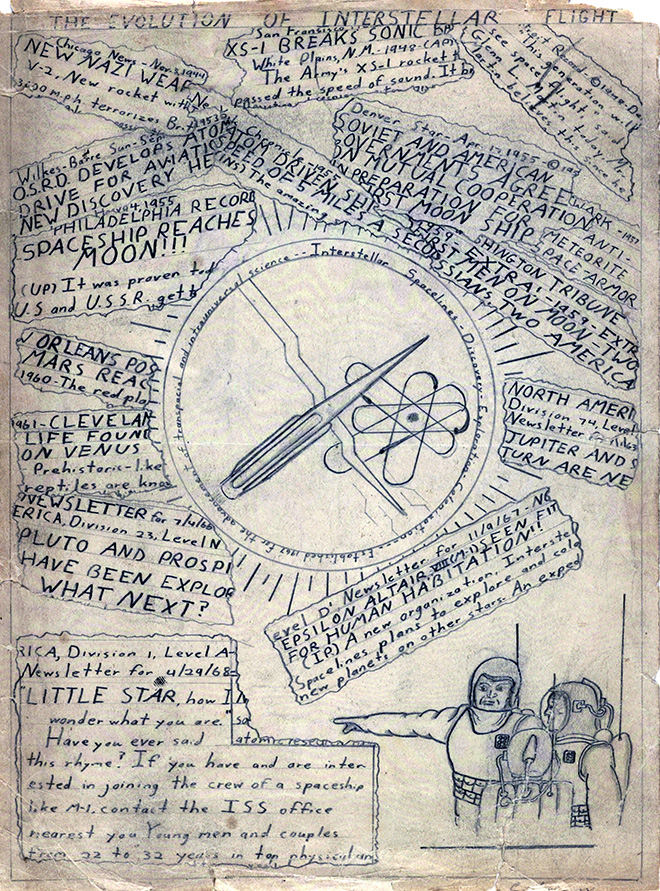 THE EVOLUTION OF INTERSTELLAR FLIGHT
Chicago News - Nov. 3, 1944
NEW NAZI WEAP
V-2. New rocket with
3600 m.p.h. terrorizes Br
San Fransisco
XS-1 BREAKS SONIC B
White Plains, N.M. - 1948 - (AP)
The Army's XS-1 rocket
passed the speed of sound. It
this generation will
see space flight, said
Glenn L. Martin today. Mr.
Martin believes this since he
Wilkes-Barre Sun - Sep
O.S.R.D. DEVELOPS ATOM
DRIVE FOR AVIATI
NEW DISCOVERY HE
ATOM DRIVEN SHIP
SPEED OF 5 MILES A SECO
(INS) The amazing
Denver Star - Apr. 17, 1955
SOVIET AND AMERICAN
GOVERNMENTS AGREE
ON MUTUAL COOPERATION
IN PREPARATION FOR
FIRST MOON SHIP
ANTI-
METEORITE
SPACE-ARMOR
1955
PHILADELPHIA RECORD
SPACESHIP REACHES
MOON!!!
(UP) It was proven tod
U.S and U.S.S.R. get
1959
SHINGTON TRIBUNE
EXTRA! - 1959 - EXTR
FIRST MEN ON MOON - TWO
RUSSIANS, TWO AMERICA
W ORLEANS POS
MARS REAC
1960 - The red pla
1961 - CLEVELAN
LIFE FOUN
ON VENUS
Prehistoric-like
reptiles are kno
NORTH AMERI
Division 74, Level
Newsletter
JUPITER AND S
TURN ARE NE
NEWSLETTER for 7/4/66
ERICA, Division 23, Level N
PLUTO AND PROSPI
HAVE BEEN EXPLOR
WHAT NEXT?
Interstellar Spacelines - Discovery - Exploration - Colonization - Established 1967 for the advancement of transpacial and intrauniversal science --
evel D' Newsletter for 11/9/67 - N6
EPSILON ALTAIR VIII (A) DSEEN FIT
FOR HUMAN HABITATION!!
(IP) A new organization, Interste
Spacelines plans to explore and colo
new planets on other stars. An exped
RICA, Division 1, Level A-
Newsletter for 4/29/68
"LITTLE STAR, how I
wonder what you are."
Have you ever said
this rhyme? If you have and are inter
ested in joining the crew of a spaceship
like M-1, contact the ISS office
nearest you. Young men and couples
from 22 to 32 years in top physical